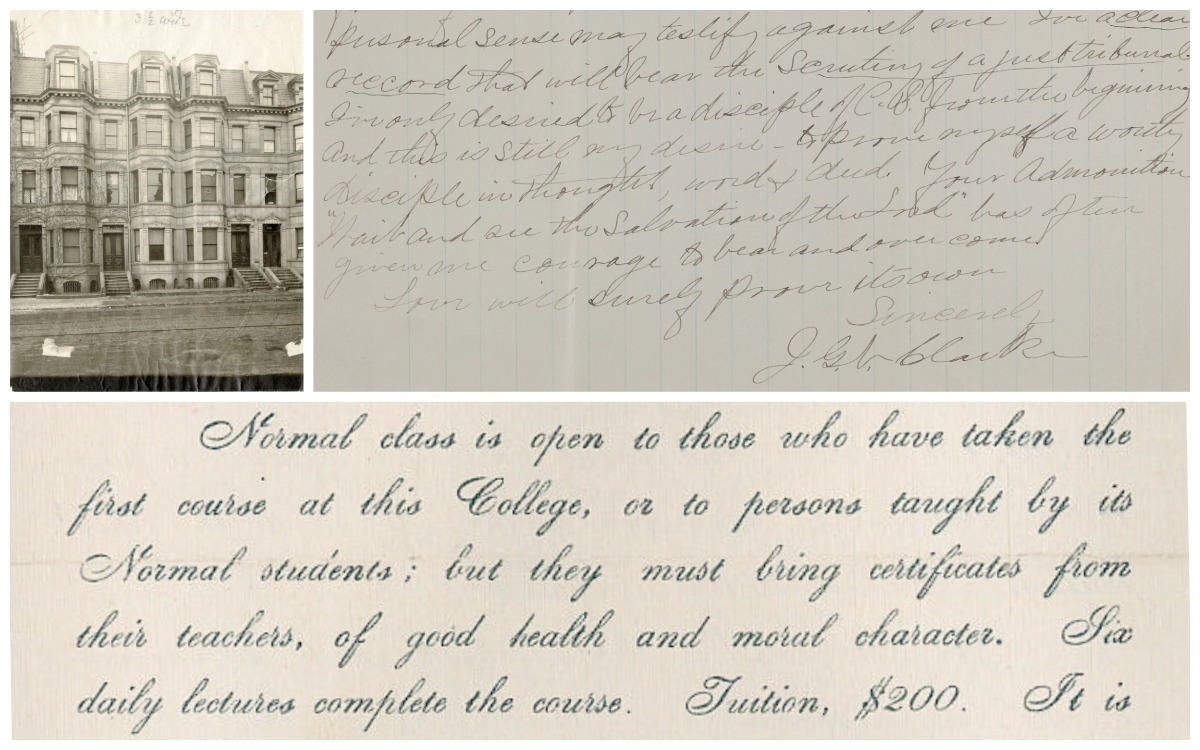 3 1/2 wide
personal sense may testify against me I've a clear
record that will bear the scrutiny of a just tribunal.
I've only desired to be a disciple of C.S. from the begining
And this is still my desire - to prove myself a worthy
disciple in thought, word & deed. Your Admonition
"Wait and see the Salvation of the Lord" has often
given me courage to bear and over come
Love will surely prove its own
Sincerely
J. G. W. Clarke
Normal class is open to those who have taken the
first course at this College, or to persons taught by its
Normal students; but they must bring certificates from
their teachers, of good health and moral character. Six
daily lectures complete the course. Tuition, $200. It is